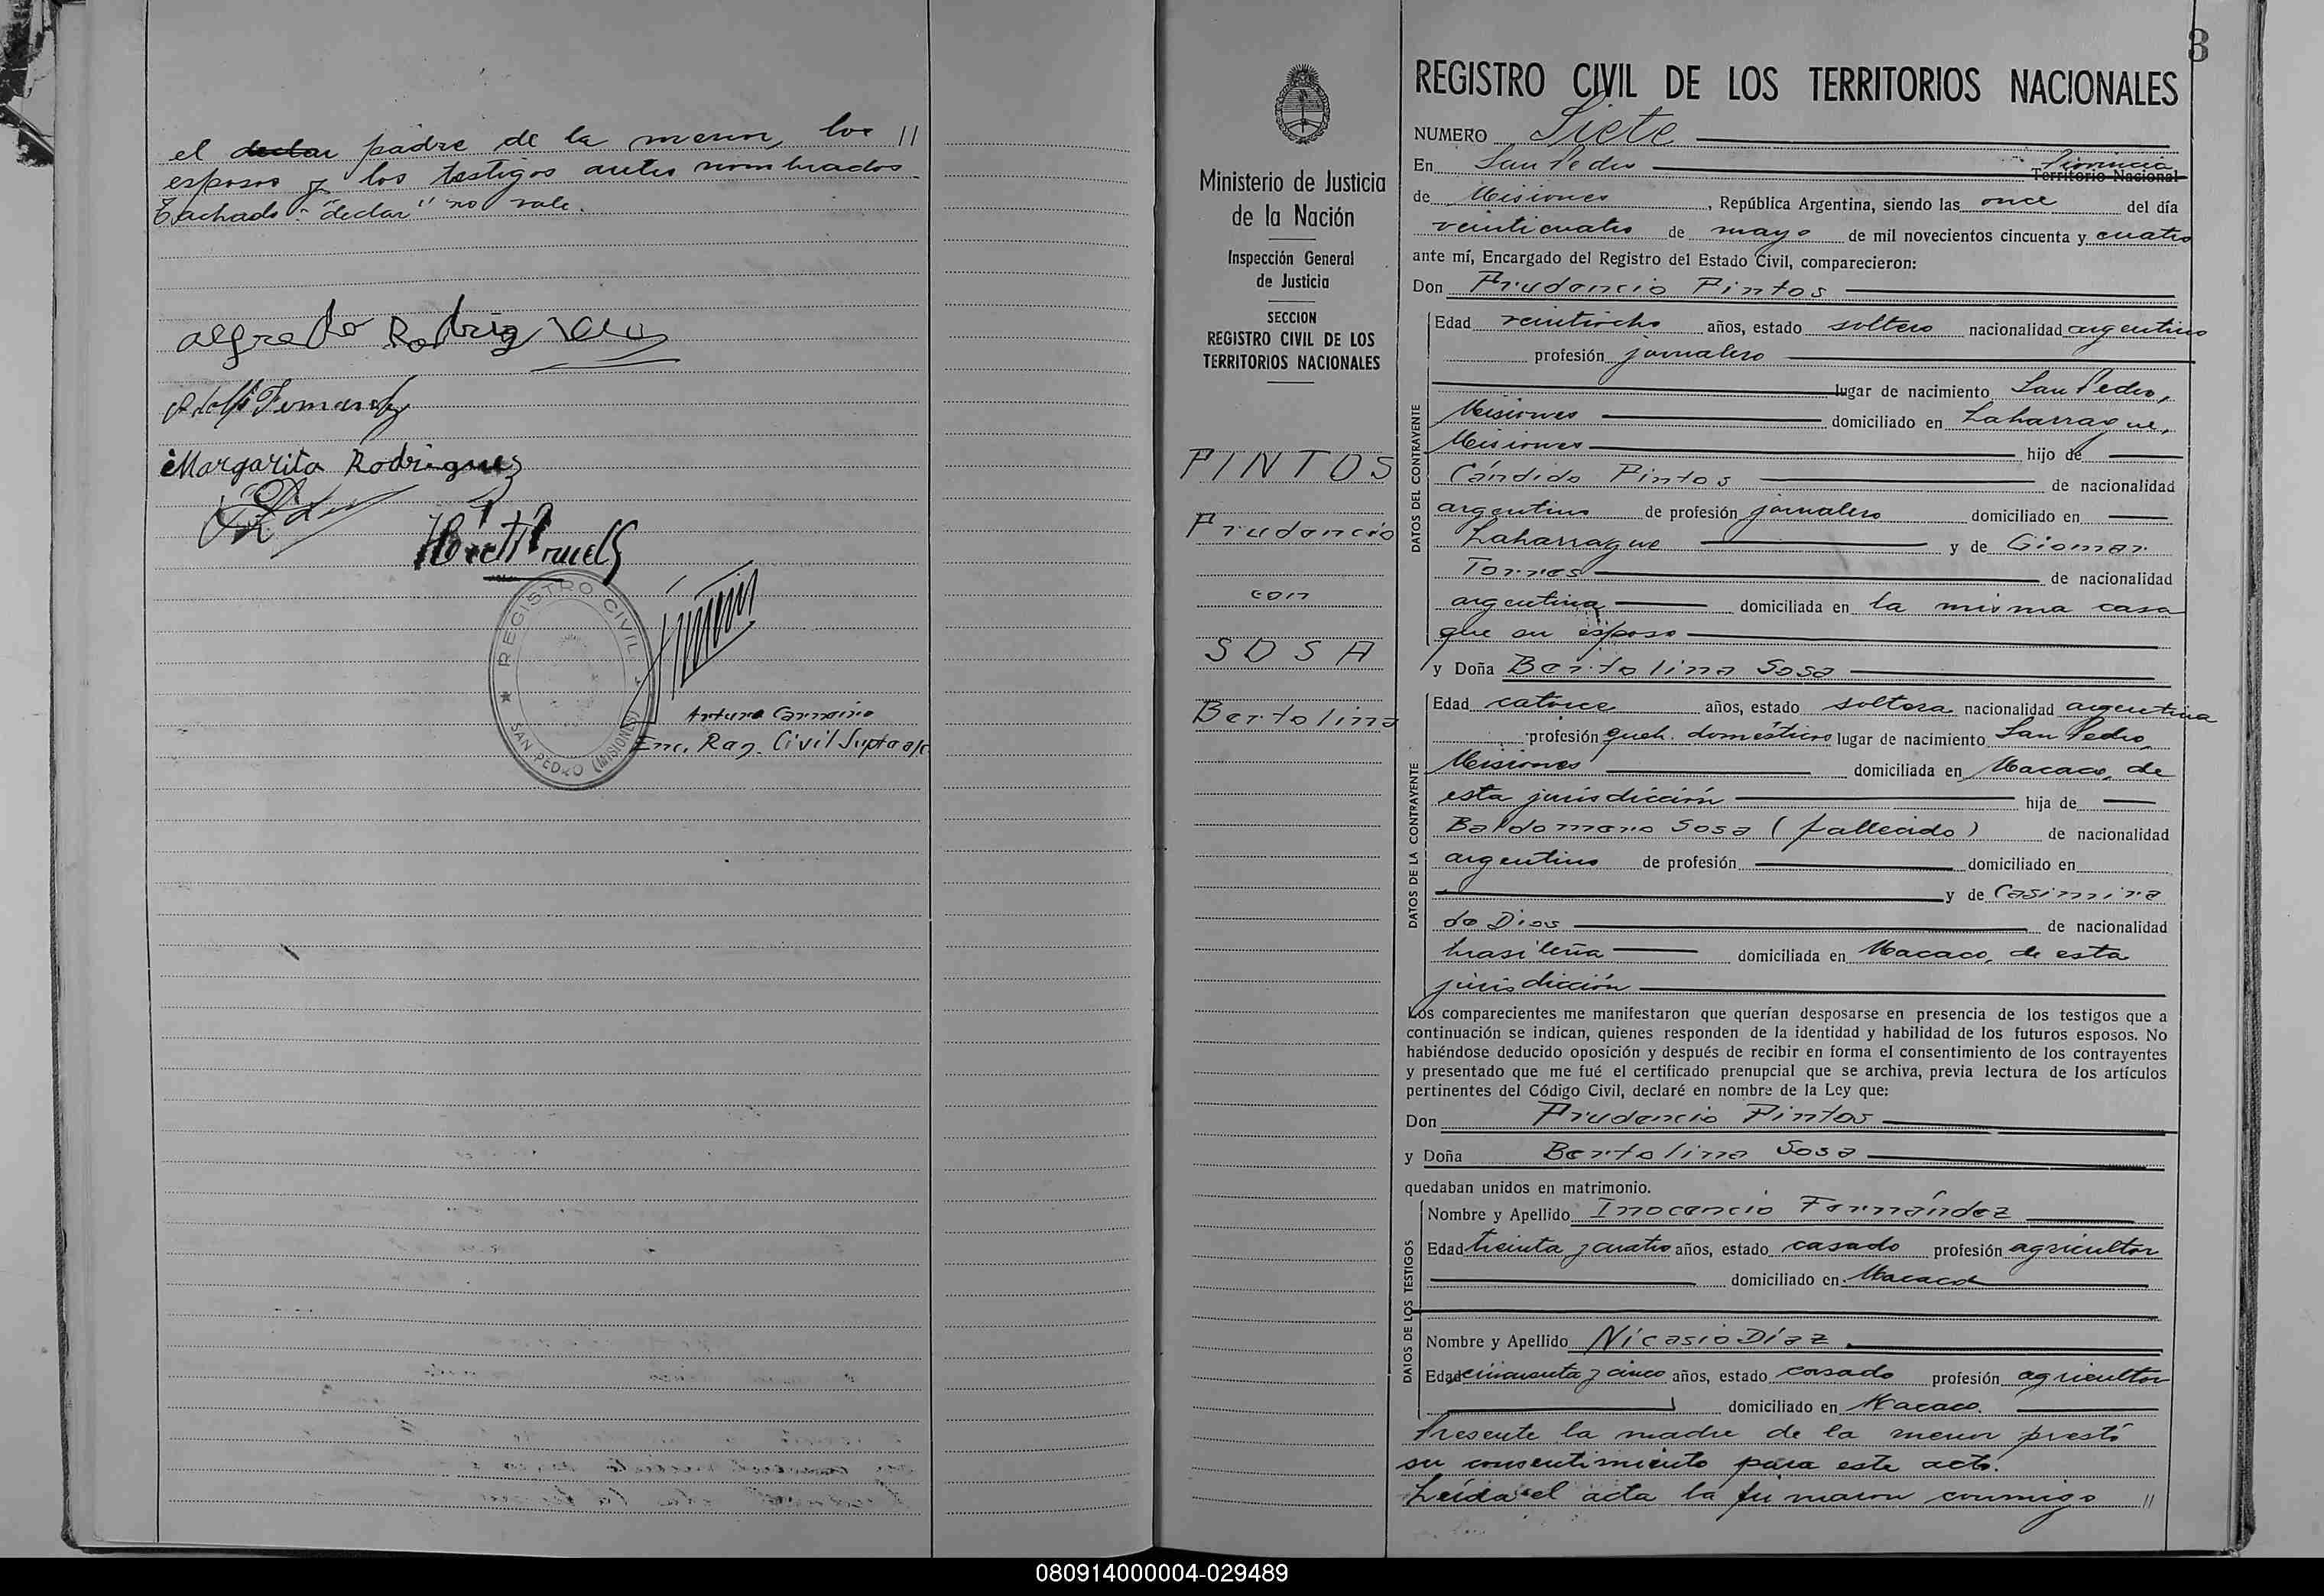 el declar padre de la menor, los //
esposos y los testigos antes nombrados.
Tachado: "declar" no vale.
Alfredo Rodriguez
Adolfo Fernandez
Margarita Rodriguez
REGISTRO CIVIL
SAN PEDRO (MISIONES)
Arturo
Enc. Reg. Civil Supte a/c
3
REGISTRO CIVIL DE LOS TERRITORIOS NACIONALES
Ministerio de Justicia
de la Nación
Inspección General
de Justicia
SECCION
REGISTRO CIVIL DE LOS
TERRITORIOS NACIONALES
PINTOS
Prudencio
con
SOSA
Bertolina
NUMERO Siete
En San Pedro Provincia
Territorio Nacional
de Misiones, República Argentina, siendo las once del día
veinticuatro de mayo de mil novecientos cincuenta y cuatro
ante mí, Encargado del Registro del Estado Civil, comparecieron:
Don Prudencio Pintos
DATOS DEL CONTRAYENTE
Edad veintiocho años, estado soltero nacionalidad argentino
profesión jornalero
lugar de nacimiento San Pedro,
Misiones domiciliado en Laharrague,
Misiones hijo de
Cándido Pintos de nacionalidad
argentino de profesión jornalero domiciliado en
Laharrague y de Giomar
Torres de nacionalidad
argentina domiciliada en la misma casa
que su esposo
y Doña Bertolina Sosa
DATOS DE LA CONTRAYENTE
Edad catorce años, estado soltera nacionalidad argentina
profesión queh. domésticos lugar de nacimiento San Pedro,
Misiones domiciliada en Macaco, de
esta jurisdicción hija de
Baldomero Sosa (fallecido) de nacionalidad
argentino de profesión domiciliado en
y de Casimira
de Dios de nacionalidad
brasileña domiciliada en Macaco, de esta
jurisdicción
Los comparecientes me manifestaron que querían desposarse en presencia de los testigos que a
continuación se indican, quienes responden de la identidad y habilidad de los futuros esposos. No
habiéndose deducido oposición y después de recibir en forma el consentimiento de los contrayentes
y presentado que me fué el certificado prenupcial que se archiva, previa lectura de los artículos
pertinentes del Código Civil, declaré en nombre de la Ley que:
Don Prudencio Pintos
y Doña Bertolina Sosa
quedaban unidos en matrimonio.
DATOS DE LOS TESTIGOS
Nombre y Apellido Inocencio Fernández
Edad treinta y cuatro años, estado casado profesión agricultor
domiciliado en Macaco
Nombre y Apellido Nicasio Díaz
Edad cincuenta y cinco años, estado casado profesión agricultor
domiciliado en Macaco.
Presente la madre de la menor prestó
su consentimiento para este acto.
Leída el acta la firmaron conmigo //
080914000004-029489